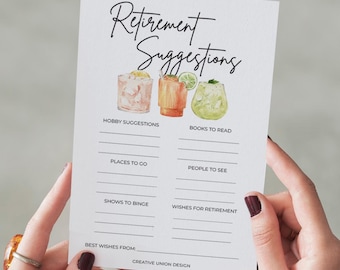 Retirement
Suggestions
HOBBY SUGGESTIONS
BOOKS TO READ
PLACES TO GO
PEOPLE TO SEE
SHOWS TO BINGE
WISHES FOR RETIREMENT
BEST WISHES FROM:
CREATIVE UNION DESIGN